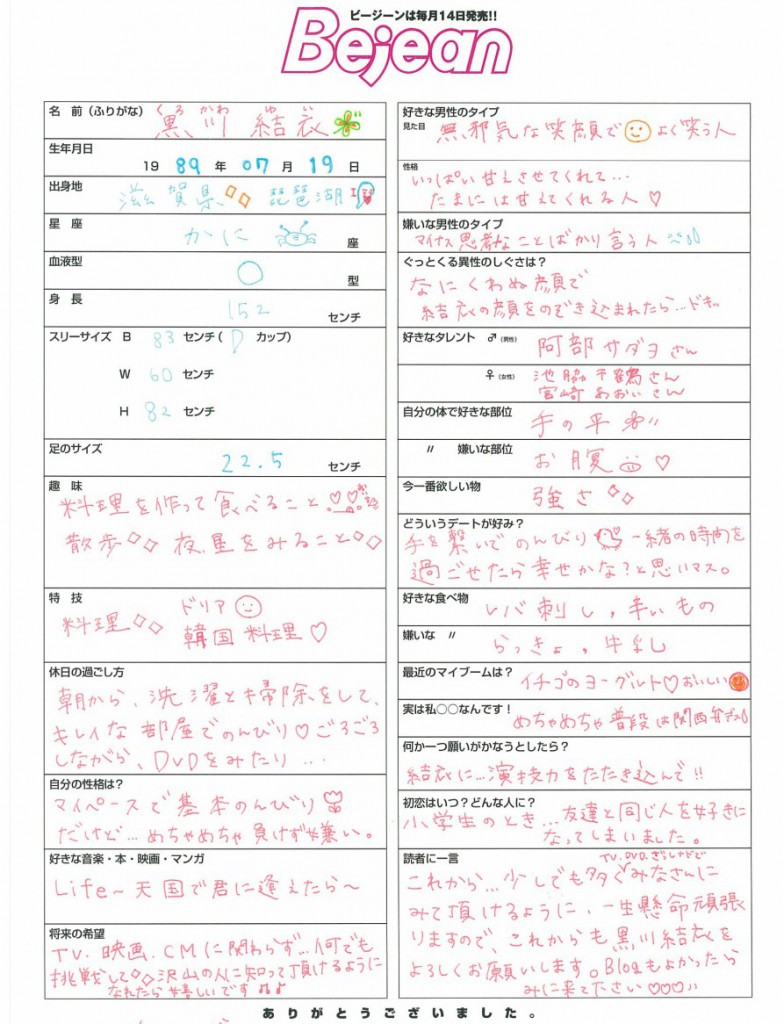 ビージーンは毎月14日発売!!
Bejean
名 前(ふりがな) くろ かわ ゆ い
黒川 結衣
生年月日
19 89 年 07 月 19 日
出身地
滋賀県 琵琶湖
星 座
かに 座
血液型
○ 型
身 長
152 センチ
スリーサイズ B 83 センチ( D カップ)
W 60 センチ
H 82 センチ
足のサイズ
22.5 センチ
趣 味
料理を作って食べること♡♡
散歩 夜、星をみること
特 技
料理 ドリア
韓国料理♡
休日の過ごし方
朝から、洗濯と掃除をして、
キレイな部屋でのんびり♡ごろごろ
しながら、DVDをみたり...
自分の性格は?
マイペースで基本のんびり
だけど...めちゃめちゃ負けず嫌い。
好きな音楽・本・映画・マンガ
Life~天国で君に逢えたら~
将来の希望
TV.映画.CMに関わらず...何でも
挑戦して 沢山の人に知って頂けるように
なれたら嬉しいです♪♪
好きな男性のタイプ
見た目 無邪気な笑顔で よく笑う人
性格
いっぱい甘えさせてくれて...
たまには甘えてくれる人♡
嫌いな男性のタイプ
マイナス思考なことばかり言う人
ぐっとくる異性のしぐさは?
なにくわぬ顔で
結衣の顔をのぞき込まれたら...ドキッ
好きなタレント ♂(男性) 阿部サダヲさん
♀(女性) 池脇千鶴さん
宮崎あおいさん
自分の体で好きな部位 手の平
〃 嫌いな部位 お腹 ♡
今一番欲しい物 強さ
どういうデートが好み?
手を繋いでのんびり 一緒の時間を
過ごせたら幸せかな?と思いマス。
好きな食べ物 レバ刺し,辛いもの
嫌いな 〃 らっきょ,牛乳
最近のマイブームは? イチゴのヨーグルト♡おいしい
実は私○○なんです!
めちゃめちゃ普段は関西弁デス
何か一つ願いがかなうとしたら?
結衣に...演技力をたたき込んで!!
初恋はいつ?どんな人に?
小学生のとき...友達と同じ人を好きに
なってしまいました。
読者に一言
TV.DVD.
これから...少しでも多くみなさんに
みて頂けるように、一生懸命頑張
りますので、これからも黒川結衣を
よろしくお願いします。Blogもよかったら
みに来て下さい♡♡♡
ありがとうございました。